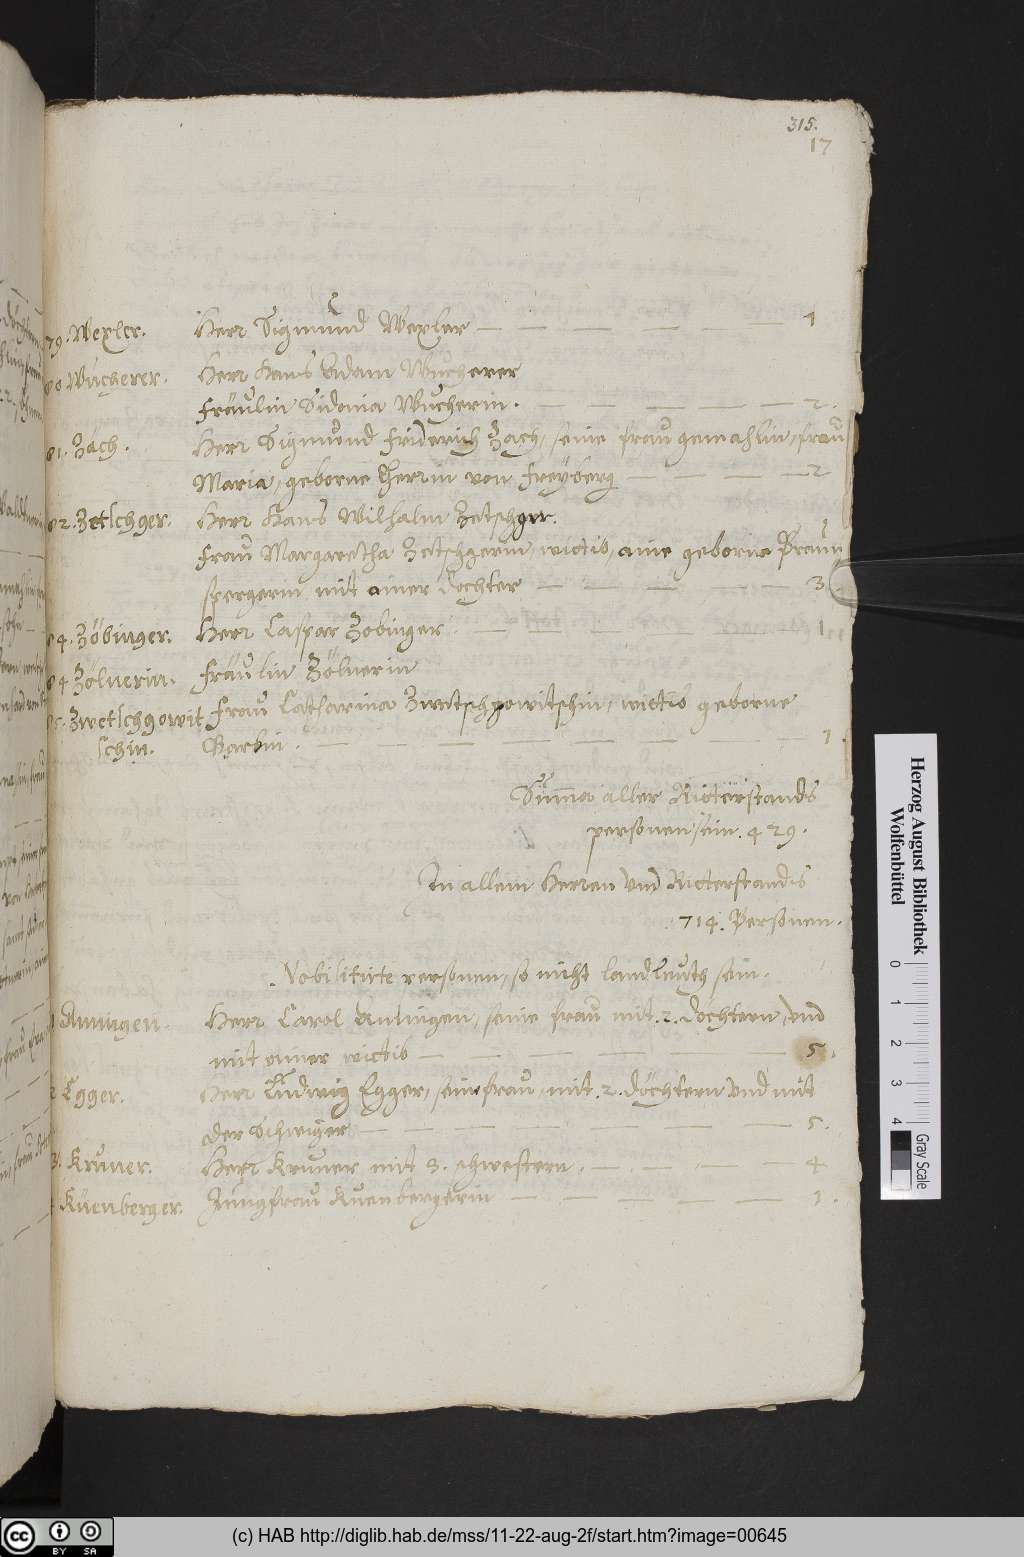 315.
17
79. Wexler. Herr Sigmund Wexler — — — — — — 1
80. Wucherer. Herr Hans Adam Wucherer
Fräulin Sidonia Wucherin. — — — — — 2.
81. Zach. Herr Sigmund Friderich Zach, seine frau gemahlin, frau
Maria, geborne Herrin von Freyberg — — — — 2
82. Zetschger. Herr Hans Wilhalm Zetschger.
Frau Margaretha Zetschgerin, wittib, aine geborne Praun
spergerin mit ainer dochter — — — — 3.
84. Zöbinger. Herr Caspar Zobinger — — — — — 1
84 Zölnerin. Fräulin Zölnerin
85. Zwetschgowit Frau Catharina Zwetschgowitschin, wittib geborne
schin. Barbin. — — — — — — — — 1.
Summa aller Ritterstands
personen sein. 429.
In allem Herren und Ritterstandis
714. Personen.
Nobilitirte personen, so nicht landleuth sein.
Aningen. Herr Carol Aningen, seine frau mit. 2. döchtern, und
mit einer wittib — — — — — 5.
2 Egger. Herr Ludwig Egger, sein frau, mit. 2. döchtern und mit
der Schwiger — — — — — 5.
3. Kruner. Herr Kruner mit 3. schwestern. — — — — 4
Küenberger. Jungfrau Kuenbergerin — — — — — 1.
Herzog August Bibliothek
Wolfenbüttel
0 1 2 3 4
Gray Scale
CC BY SA
(c) HAB http://diglib.hab.de/mss/11-22-aug-2f/start.htm?image=00645